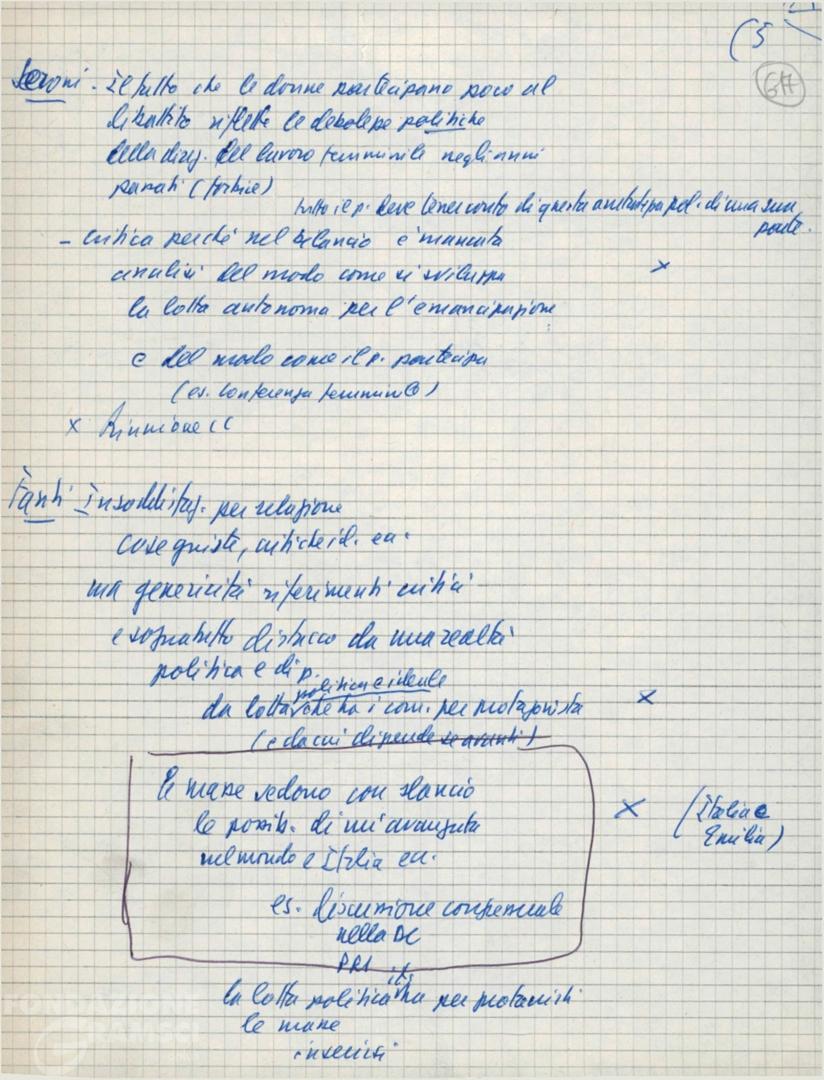 (5
617
Seroni. Il fatto che le donne partecipano poco al
dibattito riflette le debolezze politiche
della direz. del lavoro femminile negli anni
passati (forbice)
tutto il p. deve tener conto di questa pol. di una sua
parte.
- critica perché nel bilancio è mancata
analisi del modo come si sviluppa x
la lotta autonoma per l'emancipazione
e del modo come il p. partecipa
(es. conferenza femminile)
x Riunione CC
Fanti Insoddisfaz. per relazione
cose giuste, critiche id. ecc.
ma genericità riferimenti critici
e soprattutto distacco da una realtà
politica e di p.
politica e ideale
da lotta che ha i com. per protagonista x
(e da cui dipende se avanti)
le masse vedono con slancio
le possib. di un'avanzata x (Italia e
Emilia)
nel mondo e Italia ecc.
es. discussione congressuale
nella DC
PRI
la lotta politica ha per protagonisti
le masse